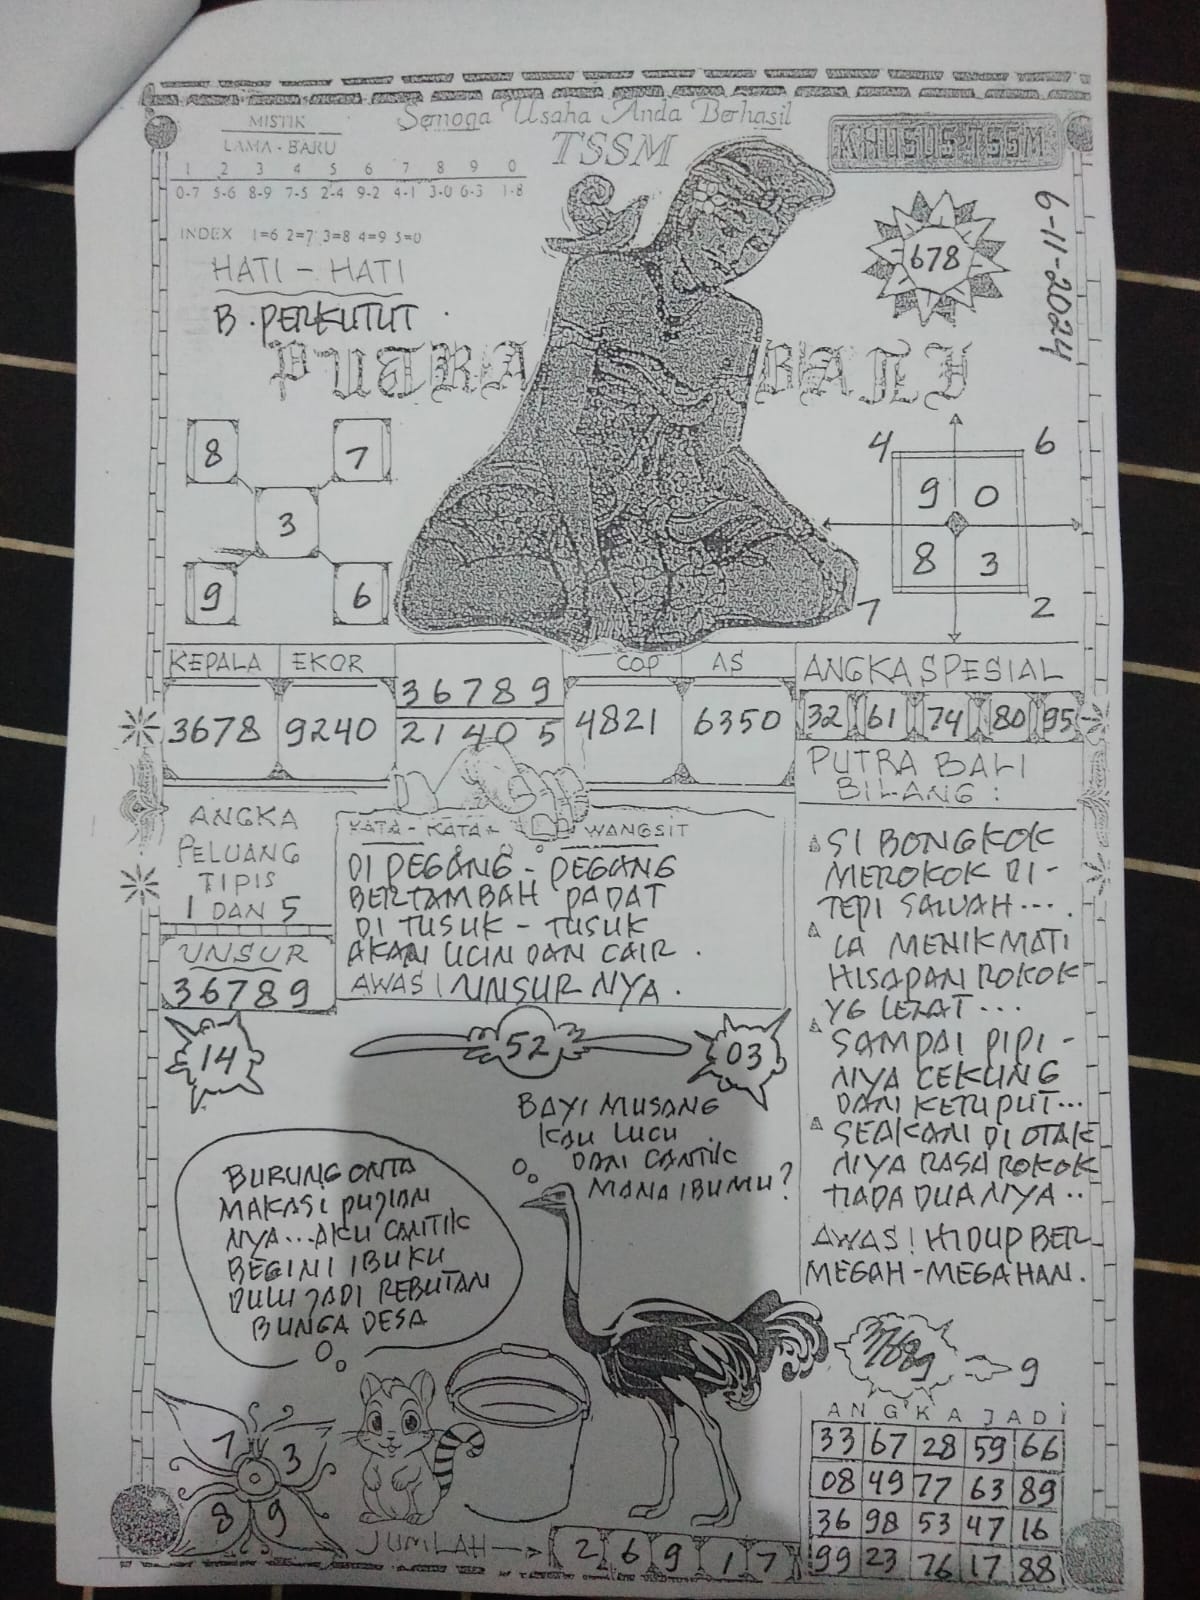 Semoga Usaha Anda Berhasil
TSSM
KHUSUS TSSM
MISTIK
LAMA - BARU
1 2 3 4 5 6 7 8 9 0
0-7 5-6 8-9 7-5 2-4 9-2 4-1 3-0 6-3 1-8
INDEX 1=6 2=7 3=8 4=9 5=0
HATI - HATI
B. PERKUTUT
678
6-11-2024
PUTRA BALI
8 7
3
9 6
4 6
9 0
8 3
7 2
KEPALA EKOR COP AS
3678 9240
36789
21405
4821 6350
ANGKA SPESIAL
32 61 74 80 95
PUTRA BALI
BILANG :
SI BONGKOK
MEROKOK DI-
TEPI SAWAH...
LA MENIKMATI
HISAPAN ROKOK
YG LEZAT...
SAMPAI PIPI-
NYA CEKUNG
DAN KETUPUT...
SEAKAN DI OTAK
NYA RASA ROKOK
TIADA DUANYA..
AWAS! HIDUP BER
MEGAH-MEGAHAN.
ANGKA
PELUANG
TIPIS
1 DAN 5
UNSUR
36789
KATA - KATA WANGSIT
DI PEGANG - PEGANG
BERTAMBAH PADAT
DI TUSUK - TUSUK
AKAN LICIN DAN CAIR.
AWAS! UNSURNYA.
14
52
03
BAYI MUSANG
KAU LUCU
DAN CANTIK
MANA IBUMU?
BURUNG ONTA
MAKASI PUJIAN
NYA...AKU CANTIK
BEGINI IBUKU
DULU JADI REBUTAN
BUNGA DESA
7 3
8 9
JUMLAH
2 6 9 1 7
9
ANGKA JADI
33 67 28 59 66
08 49 77 63 89
36 98 53 47 16
99 23 76 17 88